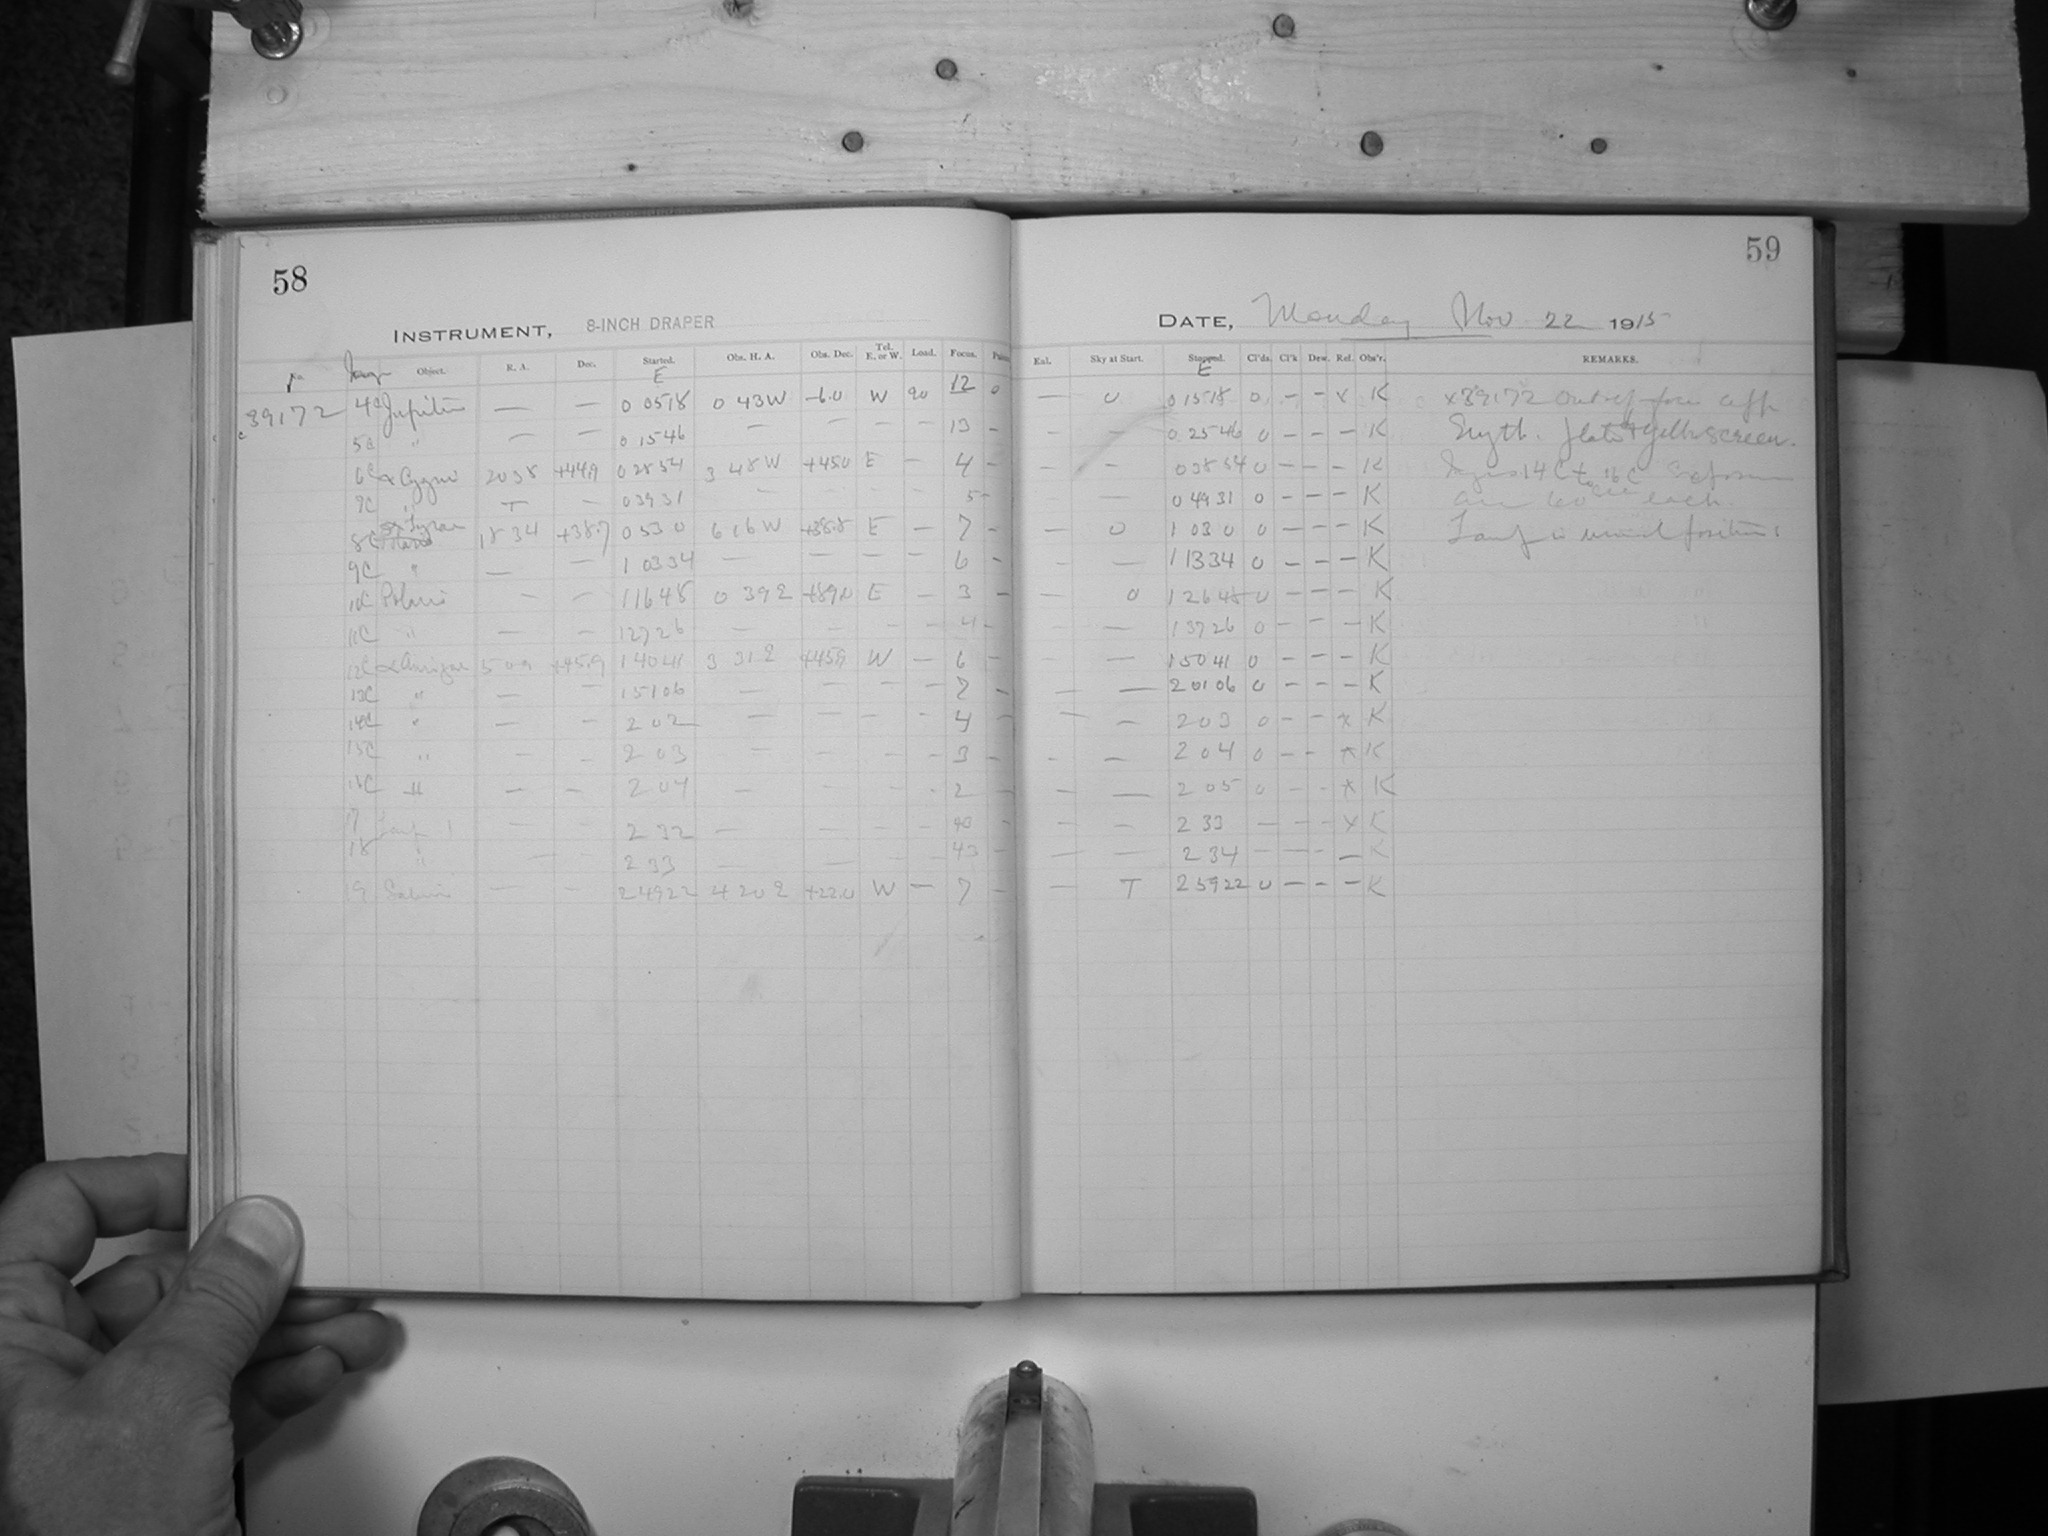 58
59
INSTRUMENT, 8-INCH DRAPER
DATE, Monday Nov 22 1915
No. Object. R. A. Dec. Started. Obs. H. A. Obs. Dec. Tel. E. or W. Load. Focus. Eul. Sky at Start. Stopped. Cl'ds. Cl'k Dew. Ref. Obs'r. REMARKS.
E E
39172 4C Jupiter — — 0 05 18 0 43 W -6.0 W 90 12 0 — 0 0 15 18 0 — — x K x39172 out of
5C " — — 0 15 46 — — — — 13 - — — 0 25 46 0 — — — K Eryth. plate + yell. screen.
6C α Cygni 20 38 +44.9 0 28 54 3 48 W +45.0 E — 4 - — — 0 38 54 0 — — — K 14C to 16C
7C " — — 0 39 31 — — — — 5 - — 0 49 31 0 — — — K are 60 each.
8C α Lyrae 18 34 +38.7 0 53 0 6 16 W +38.8 E — 7 - — 0 1 03 0 0 — — — K
9C " — — 1 03 34 — — — — 6 - — — 1 13 34 0 — — — K
10C Polaris — — 1 16 48 0 39 E +89.0 E — 3 — — 0 1 26 48 0 — — — K
11C " — — 1 27 26 — — — — 4 - — — 1 37 26 0 — — — K
12C α Aurigae 5 09 +45.9 1 40 41 3 31 E +45.9 W — 6 - — — 1 50 41 0 — — — K
13C " — — 1 51 06 — — — — 7 — — — 2 01 06 0 — — — K
14C " — — 2 02 — — — — — 4 — — — 2 03 0 — — x K
15C " — — 2 03 — — — — 3 — — — 2 04 0 — — x K
16C " — — 2 04 — — — — 2 — — — 2 05 0 — — x K
17 — — 2 32 — — — — 40 — — — 2 33 — — — x K
18 " — 2 33 — — — — 43 — — — 2 34 — — — — K
19 — — 2 49 22 4 20 E +22.0 W — 7 — — T 2 59 22 0 — — — K